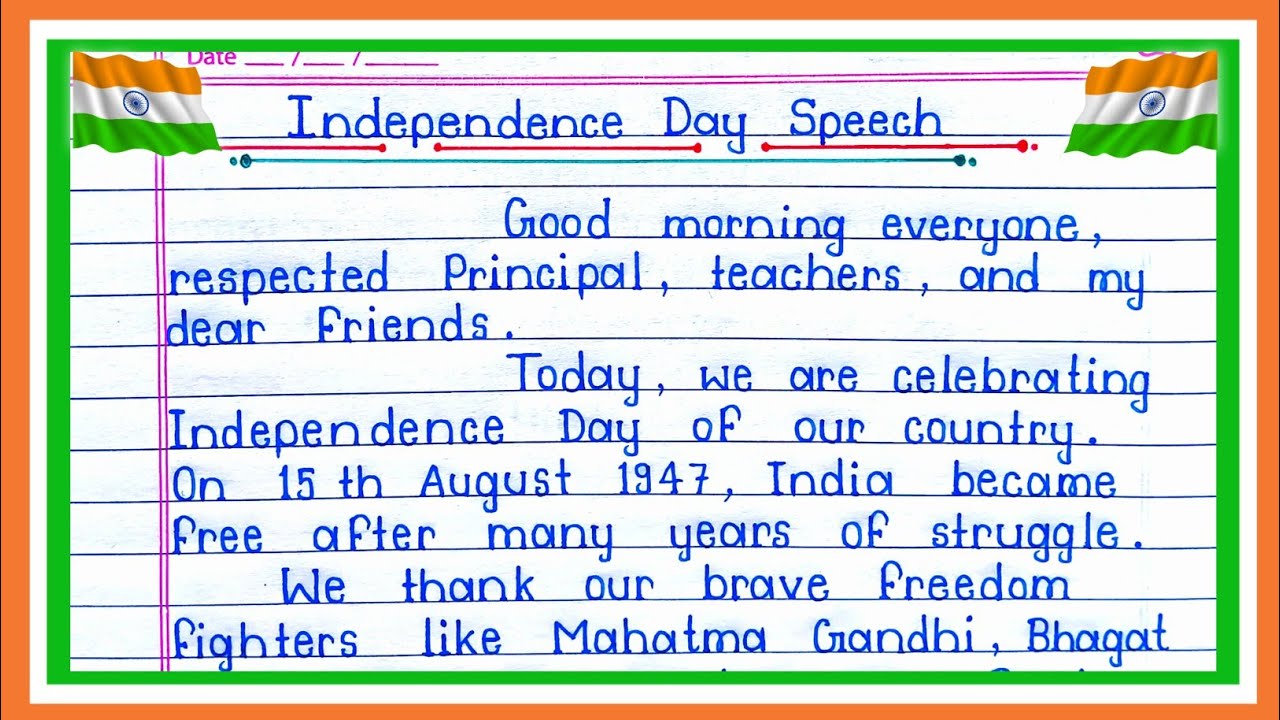 Date ___ /___ /______
Independence Day Speech
Good morning everyone,
respected Principal, teachers, and my
dear friends.
Today, we are celebrating
Independence Day of our country.
On 15 th August 1947, India became
free after many years of struggle.
We thank our brave freedom
fighters like Mahatma Gandhi, Bhagat